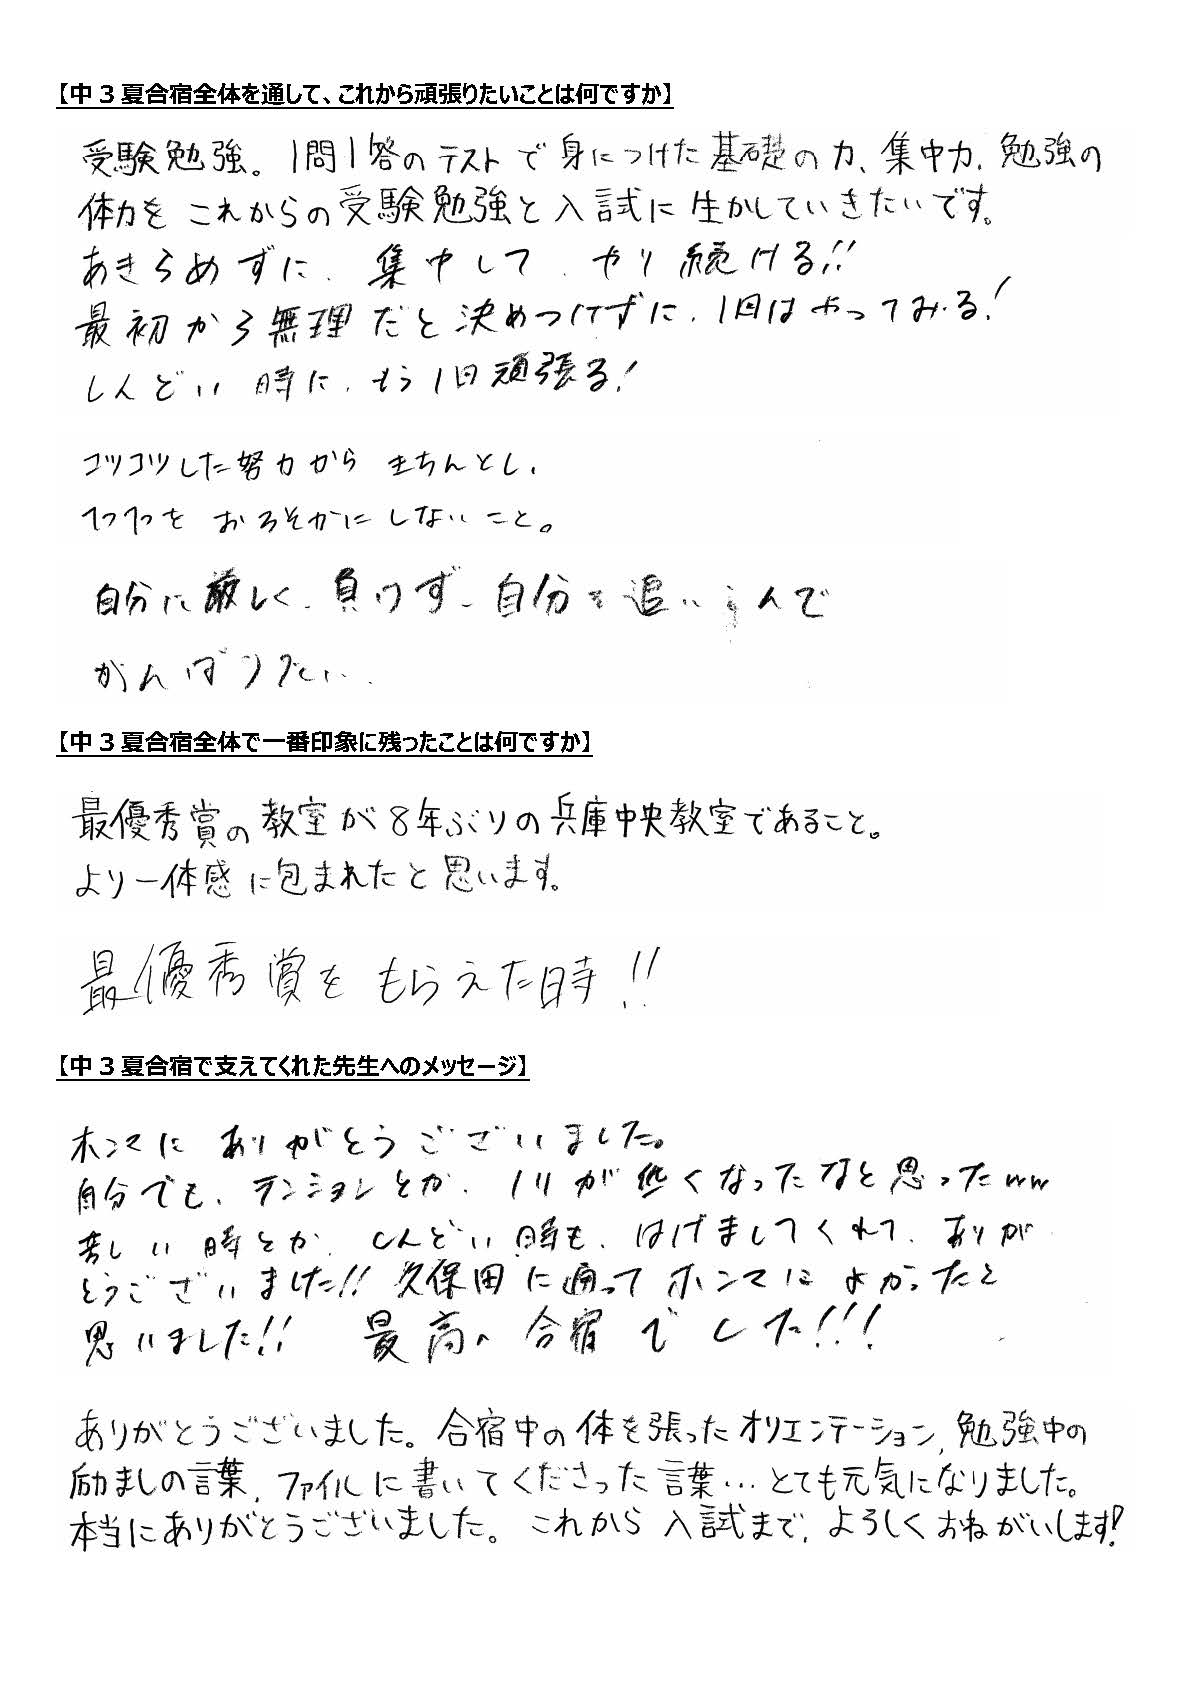 【中３夏合宿全体を通して、これから頑張りたいことは何ですか】
受験勉強。1問1答のテストで身につけた基礎の力、集中力、勉強の
体力をこれからの受験勉強と入試に生かしていきたいです。
あきらめずに、集中して、やり続ける!!
最初から無理だと決めつけずに、1回はやってみる!
しんどい時に、もう1回頑張る!
コツコツした努力からきちんとし、
1つ1つをおろそかにしないこと。
自分に厳しく、負けず、自分を追いこんで
がんばりたい。
【中３夏合宿全体で一番印象に残ったことは何ですか】
最優秀賞の教室が8年ぶりの兵庫中央教室であること。
より一体感に包まれたと思います。
最優秀賞をもらえた時!!
【中３夏合宿で支えてくれた先生へのメッセージ】
ホンマにありがとうございました。
自分でも、テンションとか、ノリが熱くなったなと思ったww
苦しい時とか、しんどい時も、はげましてくれて、ありが
とうございました!!久保田に通ってホンマによかったと
思いました!! 最高の合宿でした!!!
ありがとうございました。合宿中の体を張ったオリエンテーション、勉強中の
励ましの言葉、ファイルに書いてくださった言葉…とても元気になりました。
本当にありがとうございました。これから入試まで、よろしくおねがいします!